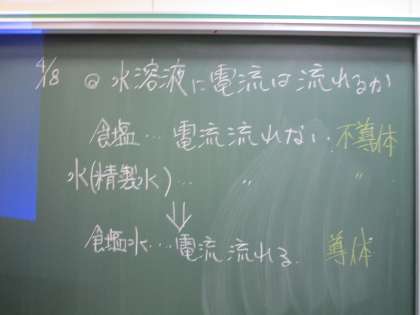 4/8 ◎水溶液に電流は流れるか
食塩…電流流れない 不導体
水(精製水)… 〃 〃
⇓
食塩水…電流流れる. 導体